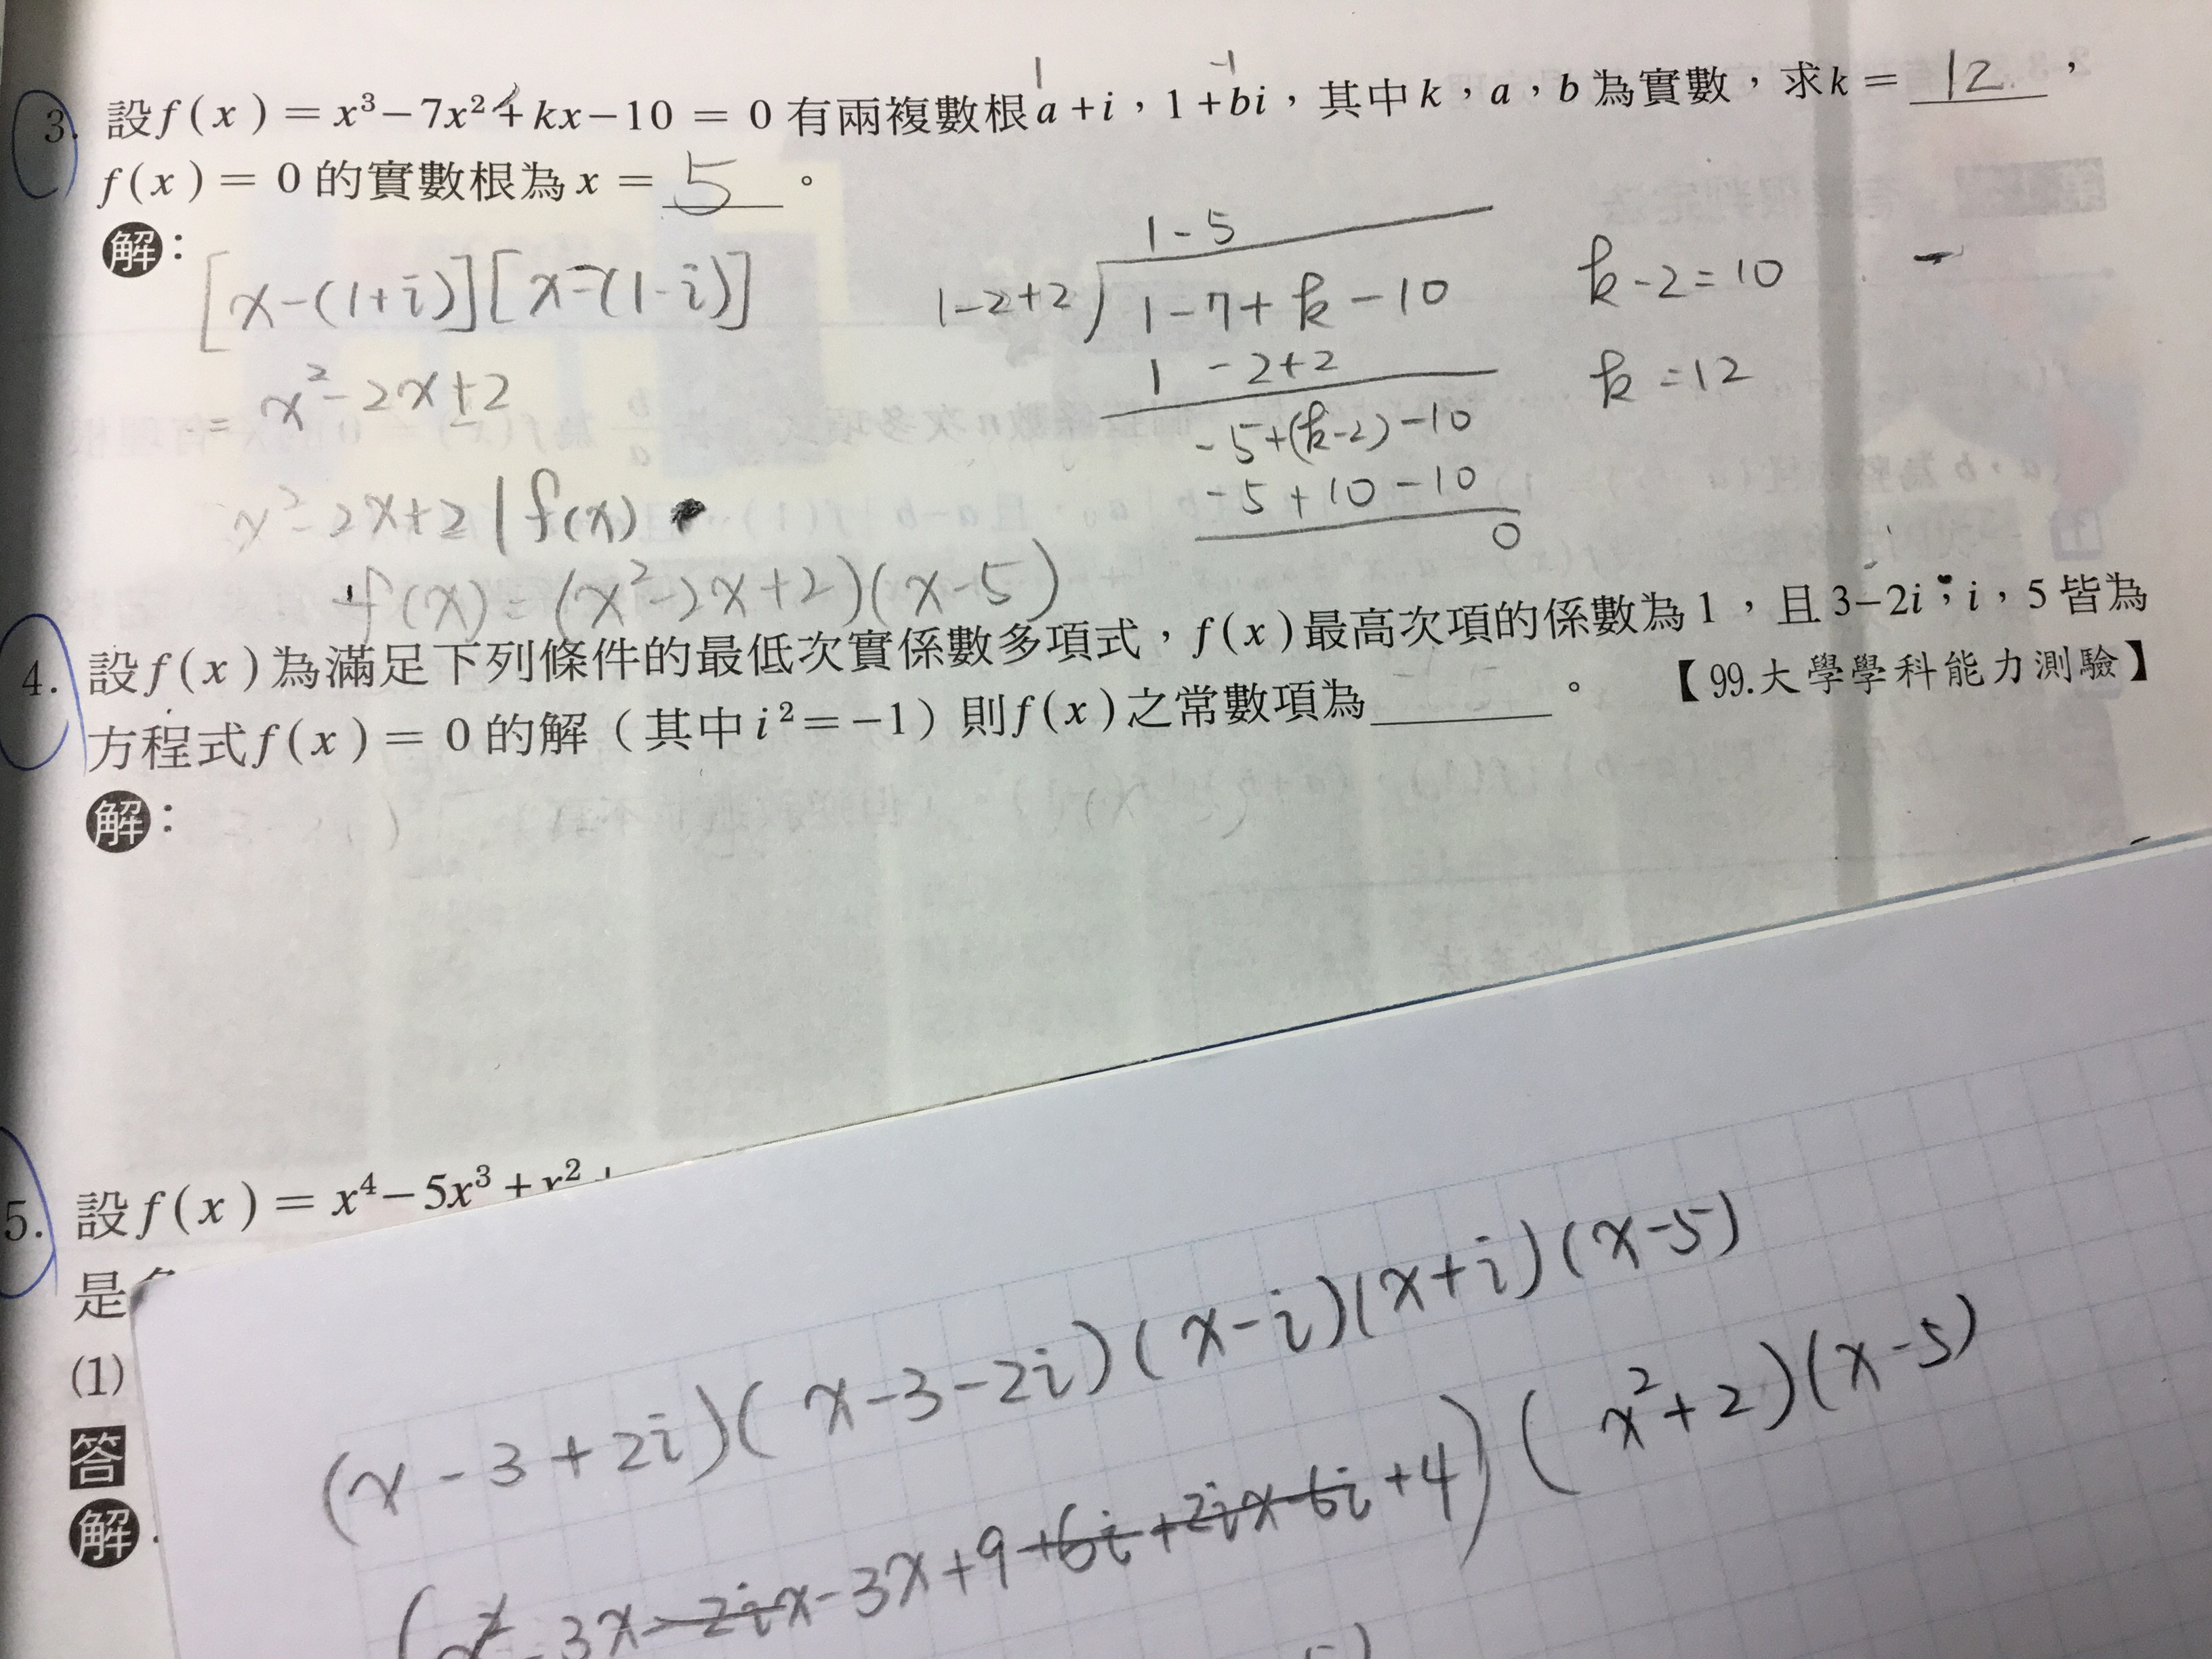 3. 設f(x)=x³−7x²+kx−10 = 0有兩複數根a+i，1+bi，其中k，a，b為實數，求k= 12，
1 -1
f(x)= 0的實數根為x= 5 。
解：
[x-(1+i)][x-(1-i)]
= x²-2x+2
x²-2x+2 | f(x)
f(x)=(x²-2x+2)(x-5)
1-5
1-2+2 ) 1-7+k-10
1 -2+2
-5+(k-2)-10
-5+10-10
0
k-2=10
k=12
4. 設f(x)為滿足下列條件的最低次實係數多項式，f(x)最高次項的係數為1，且3−2i，i，5皆為
方程式f(x)= 0的解（其中i²=−1）則f(x)之常數項為______。 【99.大學學科能力測驗】
解：
5. 設f(x)=x⁴−5x³+x²+
是
(1)
答
解
(x-3+2i)(x-3-2i)(x-i)(x+i)(x-5)
(x²-3x-2ix-3x+9+6i+2ix-6i+4)(x²+2)(x-5)